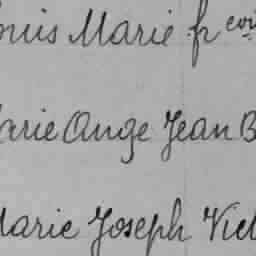 ouis Marie fr evi
arie Ange Jean B
Marie Joseph Vict